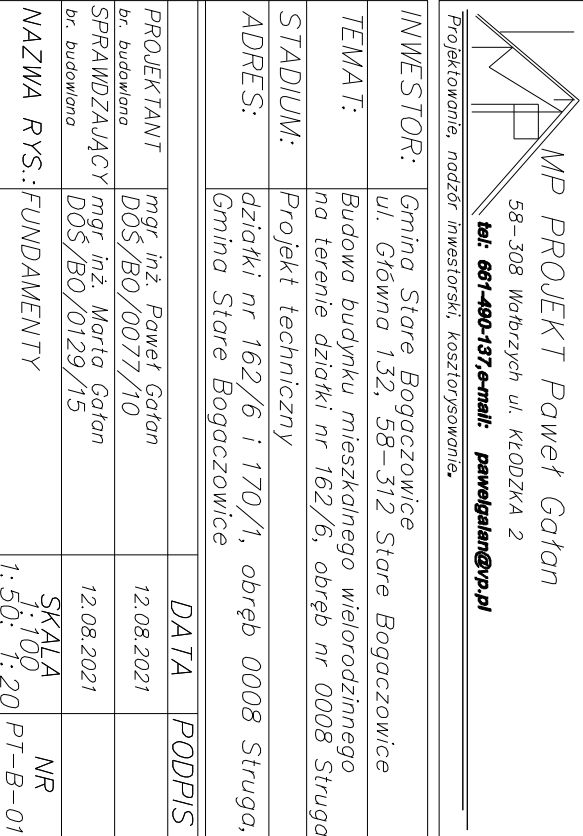 MP PROJEKT Paweł Gałan
58-308 Wałbrzych ul. KŁODZKA 2
tel: 661-490-137,e-mail: pawelgalan@vp.pl
Projektowanie, nadzór inwestorski, kosztorysowanie.
INWESTOR: Gmina Stare Bogaczowice
ul. Główna 132, 58-312 Stare Bogaczowice
TEMAT: Budowa budynku mieszkalnego wielorodzinnego
na terenie działki nr 162/6, obręb nr 0008 Struga
STADIUM: Projekt techniczny
ADRES: działki nr 162/6 i 170/1, obręb 0008 Struga,
Gmina Stare Bogaczowice
DATA PODPIS
PROJEKTANT mgr inż. Paweł Gałan 12.08.2021
br. budowlana DOŚ/BO/0077/10
SPRAWDZAJĄCY mgr inż. Marta Gałan 12.08.2021
br. budowlana DOŚ/BO/0129/15
NAZWA RYS.: FUNDAMENTY
SKALA
1:100
1:50; 1:20
NR
PT-B-01